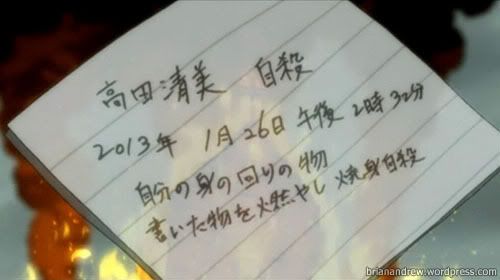 高田清美 自殺
2013年 1月26日 午後 2時32分
自分の身の回りの物
書いた物を燃やし 焼身自殺
brianandrew.wordpress.com